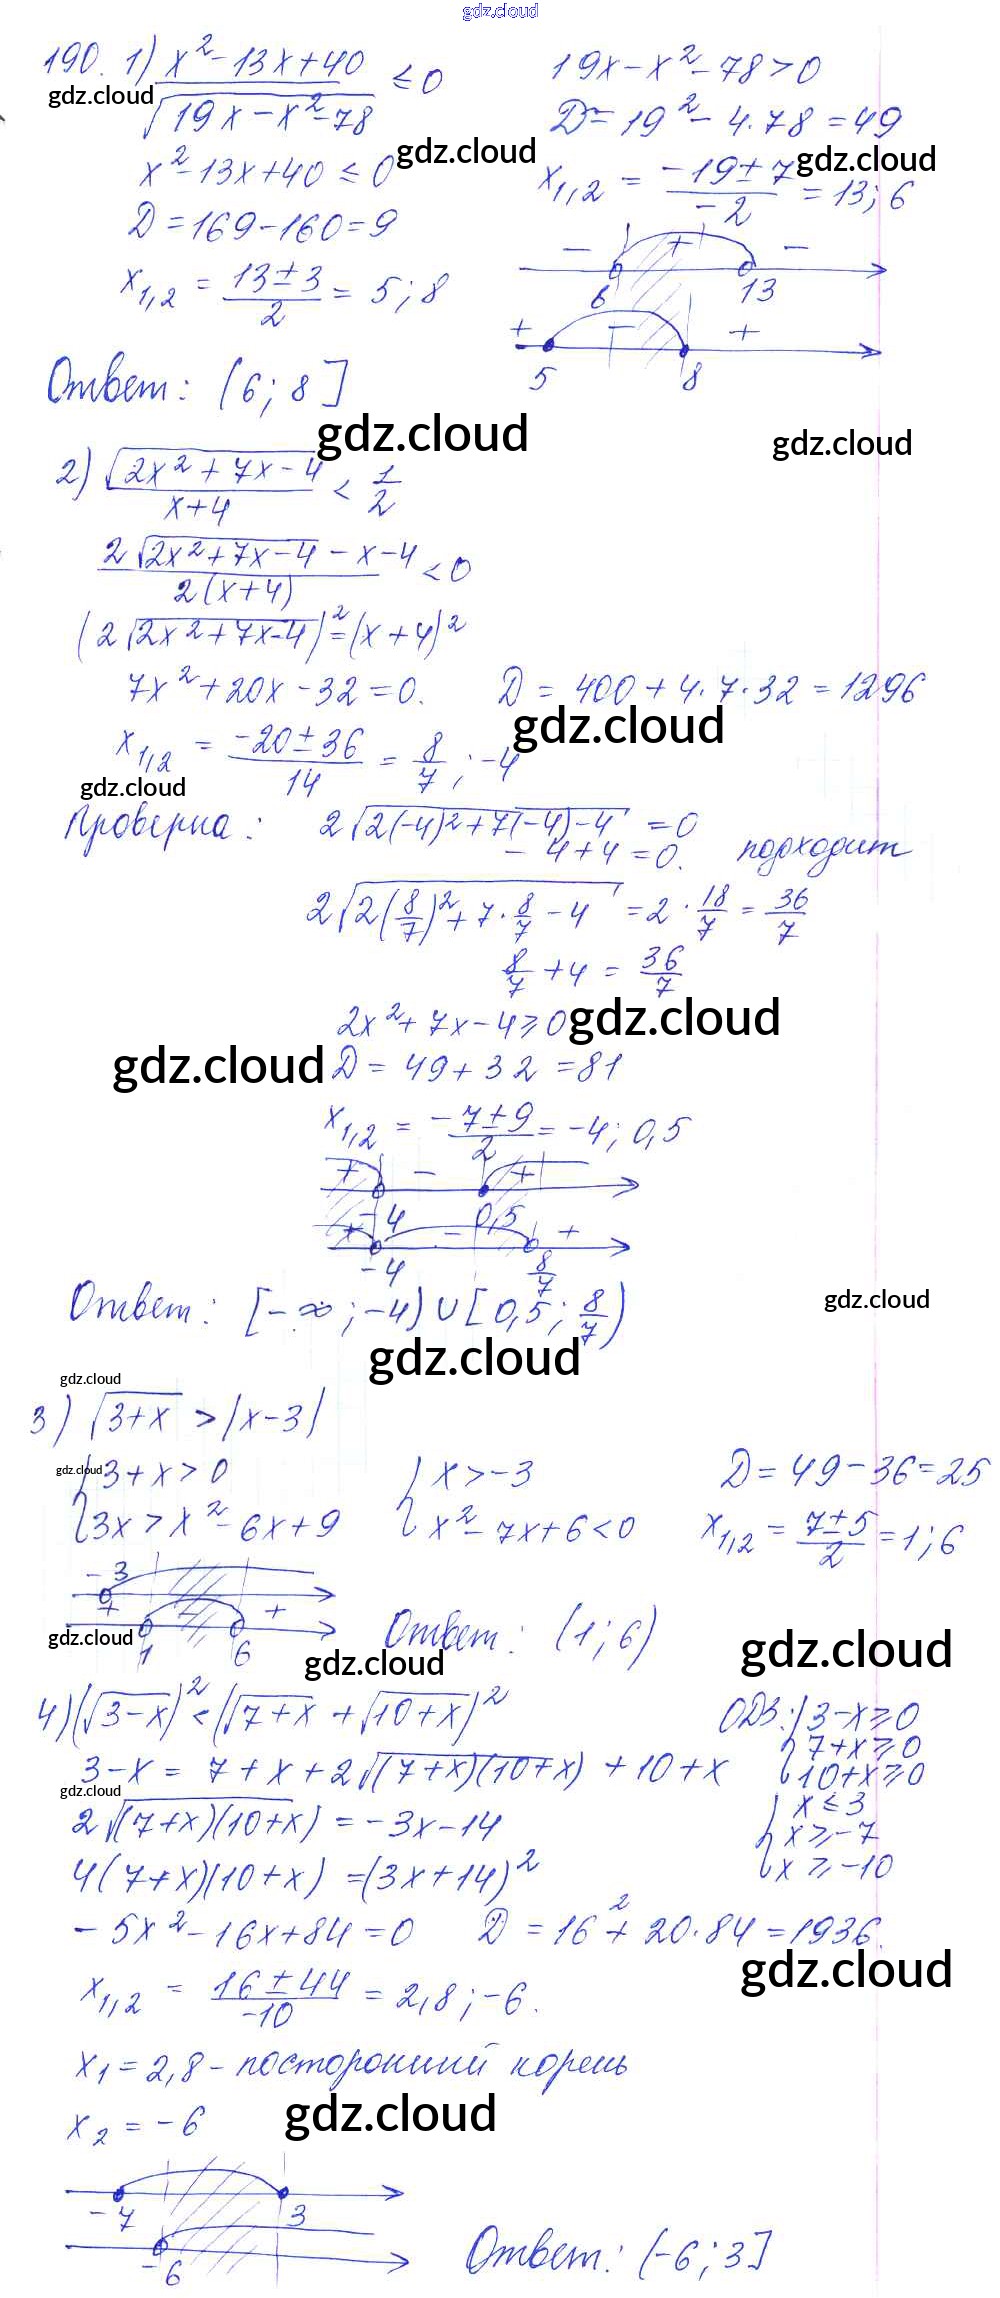 gdz.cloud
190. 1) (x² - 13x + 40)/√(19x - x² - 78) ≤ 0
19x - x² - 78 > 0
gdz.cloud
D = 19² - 4·78 = 49
gdz.cloud
gdz.cloud
x² - 13x + 40 ≤ 0
x₁,₂ = (-19 ± 7)/-2 = 13; 6
D = 169 - 160 = 9
- + -
6 13
x₁,₂ = (13 ± 3)/2 = 5; 8
+ - +
5 8
Ответ: (6; 8]
gdz.cloud
gdz.cloud
2) √(2x² + 7x - 4)/(x + 4) < 1/2
(2√(2x² + 7x - 4) - x - 4)/(2(x + 4)) < 0
(2√(2x² + 7x - 4))² = (x + 4)²
7x² + 20x - 32 = 0. D = 400 + 4·7·32 = 1296
gdz.cloud
x₁,₂ = (-20 ± 36)/14 = 8/7; -4
gdz.cloud
Проверка: 2√(2(-4)² + 7(-4) - 4) = 0
- 4 + 4 = 0. подходит
2√(2(8/7)² + 7·8/7 - 4) = 2·18/7 = 36/7
8/7 + 4 = 36/7
2x² + 7x - 4 ≥ 0
gdz.cloud
gdz.cloud
D = 49 + 32 = 81
x₁,₂ = (-7 ± 9)/2 = -4; 0,5
+ - +
-4 0,5
+ - +
-4 8/7
Ответ: [-∞; -4) ∪ [0,5; 8/7)
gdz.cloud
gdz.cloud
gdz.cloud
3) √(3+x) > |x - 3|
gdz.cloud
{3 + x > 0 {x > -3 D = 49 - 36 = 25
{3x > x² - 6x + 9 {x² - 7x + 6 < 0 x₁,₂ = (7 ± 5)/2 = 1; 6
-3
+ - +
1 6
Ответ: (1; 6)
gdz.cloud
gdz.cloud
gdz.cloud
4) (√(3-x))² < (√(7+x) + √(10+x))² ОДЗ: {3 - x ≥ 0
{7 + x ≥ 0
{10 + x ≥ 0
3 - x = 7 + x + 2√((7+x)(10+x)) + 10 + x
gdz.cloud
{x ≤ 3
{x ≥ -7
{x ≥ -10
2√((7+x)(10+x)) = -3x - 14
4(7+x)(10+x) = (3x + 14)²
- 5x² - 16x + 84 = 0 D = 16² + 20·84 = 1936.
gdz.cloud
x₁,₂ = (16 ± 44)/-10 = 2,8; -6.
x₁ = 2,8 - посторонний корень
x₂ = -6
gdz.cloud
-7 3
-6
Ответ: (-6; 3]